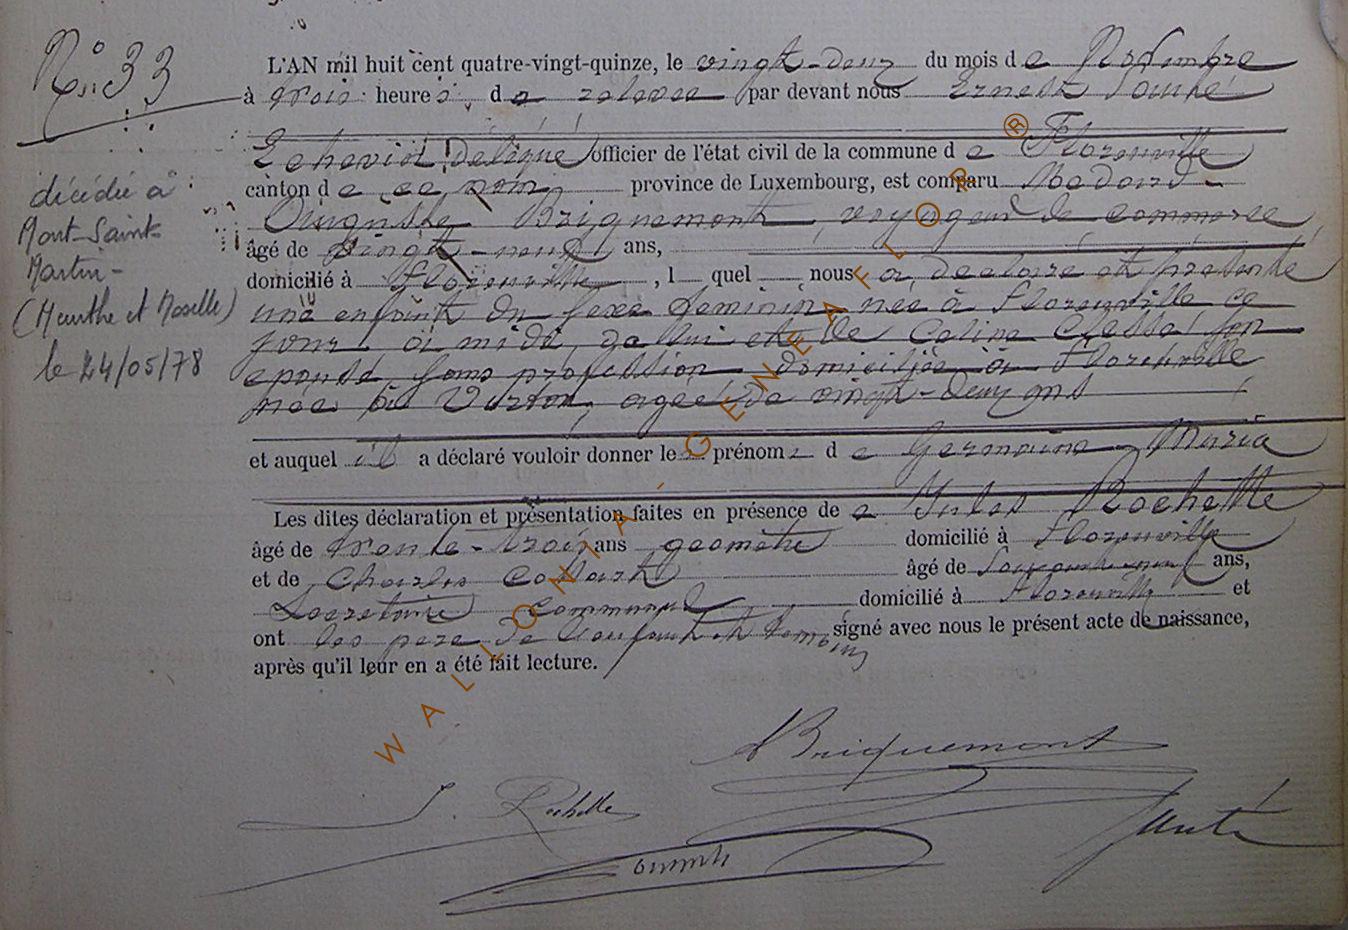 N° 33
décédée à
Mont-Saint-
Martin-
(Meurthe et Moselle)
le 24/05/78
L'AN mil huit cent quatre-vingt-quinze, le vingt-deux du mois de Novembre
à trois heures de relevée par devant nous Ernest
Echevin délégué officier de l'état civil de la commune de Florenville
canton de ce nom province de Luxembourg, est comparu Medard-
Auguste Briquemont, voyageur de commerce
âgé de vingt-neuf ans,
domicilié à Florenville, lequel nous a déclaré et présenté
une enfant du sexe féminin née à Florenville ce
jour à midi, de lui et de Celine son
épouse sans profession domiciliée à Florenville
née à Virton, agée de vingt-deux ans
et auquel il a déclaré vouloir donner le prénom de Germaine-Maria
Les dites déclaration et présentation faites en présence de Jules Rochette
âgé de trente-trois ans géomètre domicilié à Florenville
et de Charles âgé de ans,
Secretaire communal domicilié à Florenville et
ont les père de l'enfant et temoins signé avec nous le présent acte de naissance,
après qu'il leur en a été fait lecture.
ABriquemont
J. Rochette
WALLONIA-GENEAFLOR®